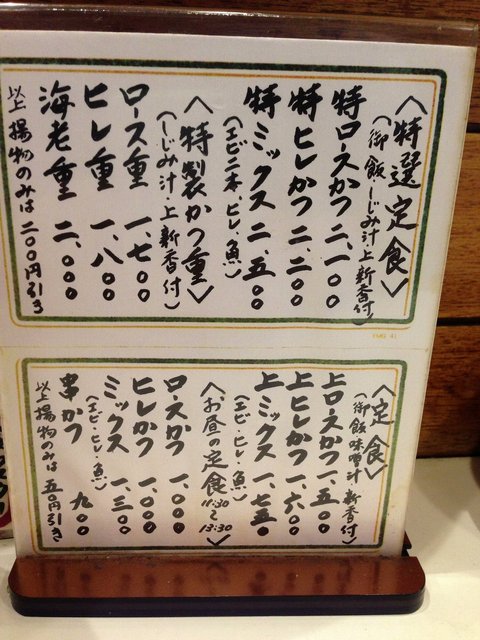 〈特選定食〉
(御飯、しじみ汁上新香付)
特ロースかつ 二、一〇〇
特ヒレかつ 二、二〇〇
特ミックス 二、五〇〇
(エビ二本、ヒレ、魚)
〈特製かつ重〉
(しじみ汁・上新香付)
ロース重 一、七〇〇
ヒレ重 一、八〇〇
海老重 二、〇〇〇
以上揚物のみは二〇〇円引き
〈定食〉
(御飯味噌汁新香付)
上ロースかつ 一、五〇〇
上ヒレかつ 一、六〇〇
上ミックス 一、七五〇
(エビ・ヒレ・魚)
〈お昼の定食 11:30〜13:30〉
ロースかつ 一、〇〇〇
ヒレかつ 一、〇〇〇
ミックス 一、三〇〇
(エビ・ヒレ・魚)
串かつ 九〇〇
以上揚物のみは五〇円引き